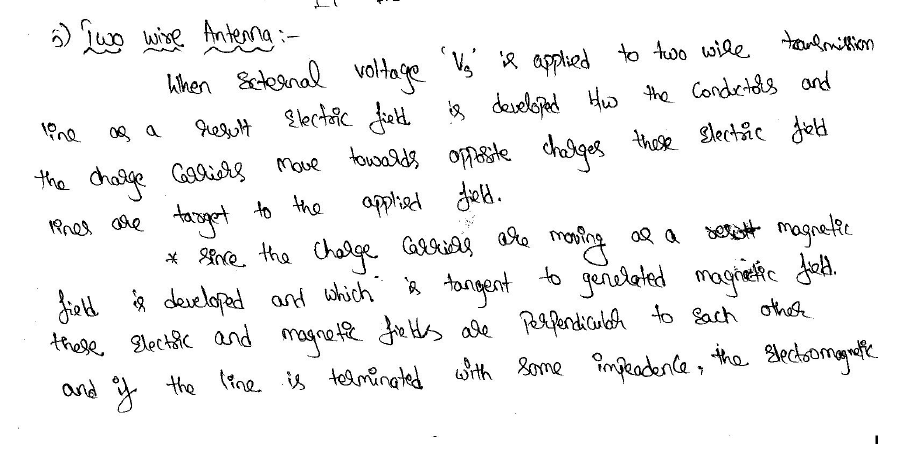 5) Two wire Antenna :-
When External voltage 'Vs' is applied to two wire transmission
line as a result Electric field is developed b/w the conductors and
the charge carriers move towards opposite charges these Electric field
lines are target to the applied field.
* Since the charge carriers are moving as a result magnetic
field is developed and which is tangent to generated magnetic field.
these Electric and magnetic fields are Perpendicular to Each other
and if the line is terminated with some impeadence, the Electromagnetic